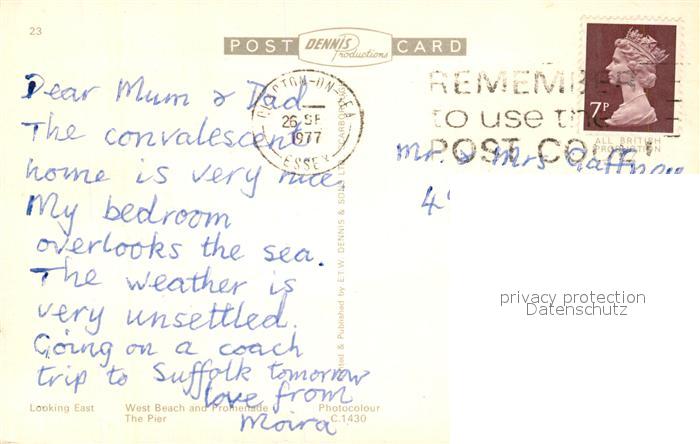 23
POST DENNIS Productions CARD
CLACTON-ON-SEA
26 SE
1977
ESSEX
REMEMBER
to use the
POST CODE
7P
ALL BRITISH
PRODUCTION
Dear Mum & Dad
The convalescent
home is very nice
My bedroom
overlooks the sea.
The weather is
very unsettled.
Going on a coach
trip to Suffolk tomorrow
love from
Moira
Mr. & Mrs Gaffney
Published by E.T.W. DENNIS & SONS LTD
privacy protection
Datenschutz
Looking East West Beach and Promenade Photocolour
The Pier C.1430